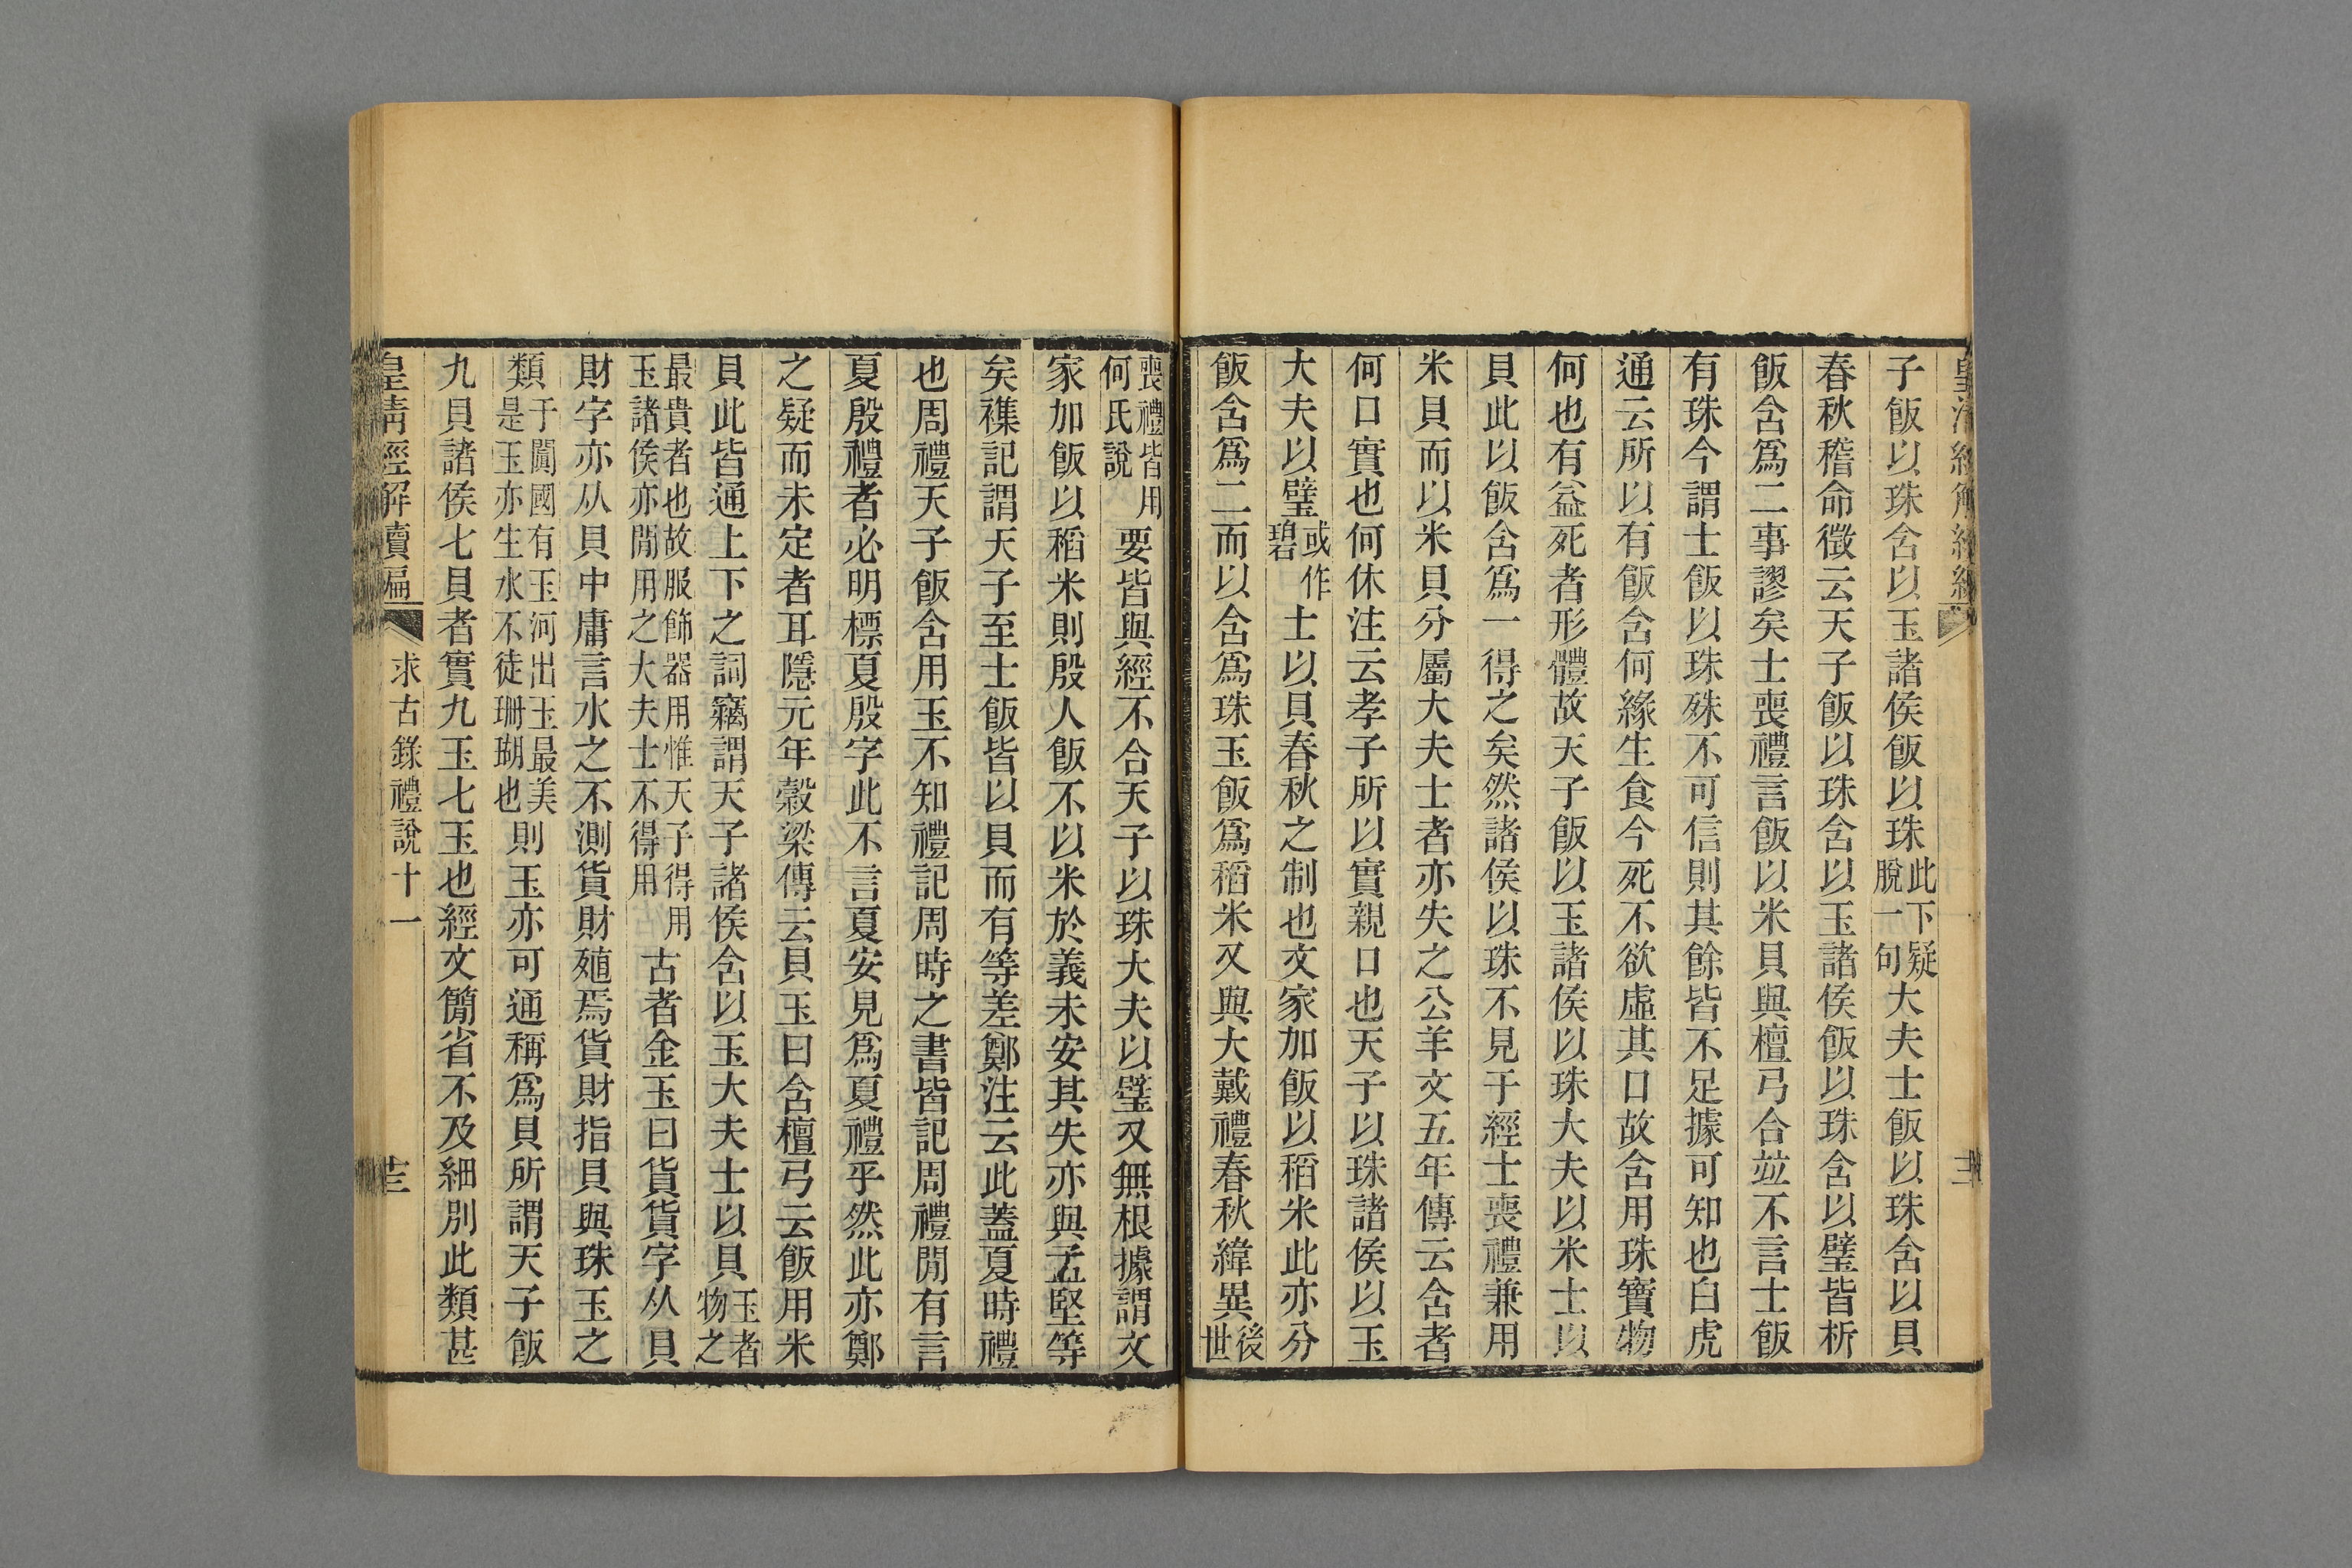 子飯以珠含以玉諸侯飯以珠此下疑脫一句大夫士飯以珠含以貝
春秋稽命徵云天子飯以珠含以玉諸侯飯以珠含以璧皆析
飯含爲二事謬矣士喪禮言飯以米貝與檀弓合竝不言士飯
有珠今謂士飯以珠殊不可信則其餘皆不足據可知也白虎
通云所以有飯含何緣生食今死不欲虛其口故含用珠寶物
何也有益死者形體故天子飯以玉諸侯以珠大夫以米士以
貝此以飯含爲一得之矣然諸侯以珠不見于經士喪禮兼用
米貝而以米貝分屬大夫士者亦失之公羊文五年傳云含者
何口實也何休注云孝子所以實親口也天子以珠諸侯以玉
大夫以璧或作碧士以貝春秋之制也文家加飯以稻米此亦分
飯含爲二而以含爲珠玉飯爲稻米又與大戴禮春秋緯異後世
喪禮皆用何氏說要皆與經不合天子以珠大夫以璧又無根據謂文
家加飯以稻米則殷人飯不以米於義未安其失亦與孟堅等
矣襍記謂天子至士飯皆以貝而有等差鄭注云此蓋夏時禮
也周禮天子飯含用玉不知禮記周時之書皆記周禮閒有言
夏殷禮者必明標夏殷字此不言夏安見爲夏禮乎然此亦鄭
之疑而未定者耳隱元年穀梁傳云貝玉曰含檀弓云飯用米
貝此皆通上下之詞竊謂天子諸侯含以玉大夫士以貝玉者物之
最貴者也故服飾器用惟天子得用玉諸侯亦閒用之大夫士不得用古者金玉曰貨貨字从貝
財字亦从貝中庸言水之不測貨財殖焉貨財指貝與珠玉之
類于闐國有玉河出玉最美是玉亦生水不徒珊瑚也則玉亦可通稱爲貝所謂天子飯
九貝諸侯七貝者實九玉七玉也經文簡省不及細別此類甚
皇清經解續編 求古錄禮說十一